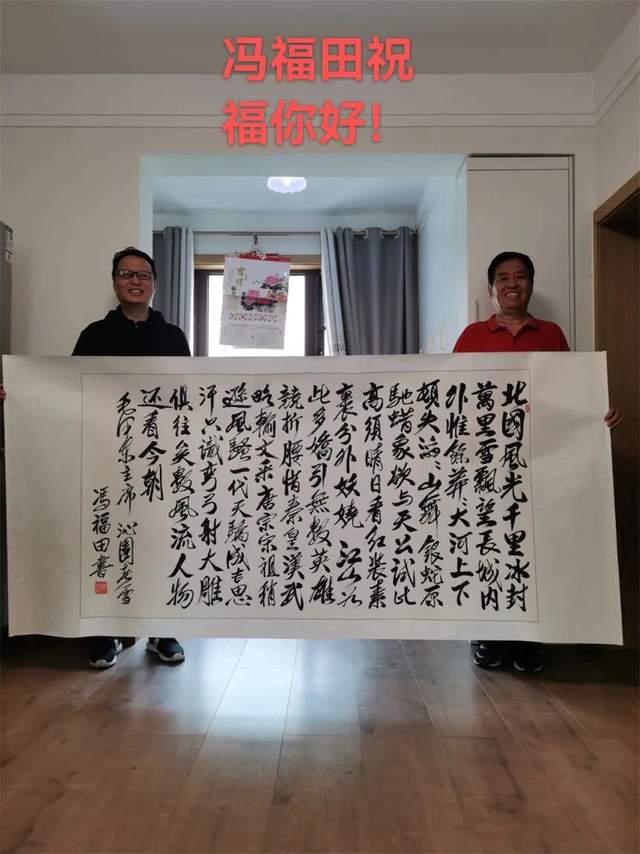 冯福田祝
福你好!
北國風光千里冰封
萬里雪飄望長城內
外惟餘莽、大河上下
頓失滔、山舞銀蛇原
馳蜡象欲与天公試比
高須晴日看紅裝素
裹分外妖嬈江山如
此多嬌引無數英雄
競折腰惜秦皇漢武
略輸文采唐宗宋祖稍
遜風騷一代天驕成吉思
汗只識彎弓射大雕
俱往矣數風流人物
还看今朝
毛泽东主席 沁園春雪
馮福田書